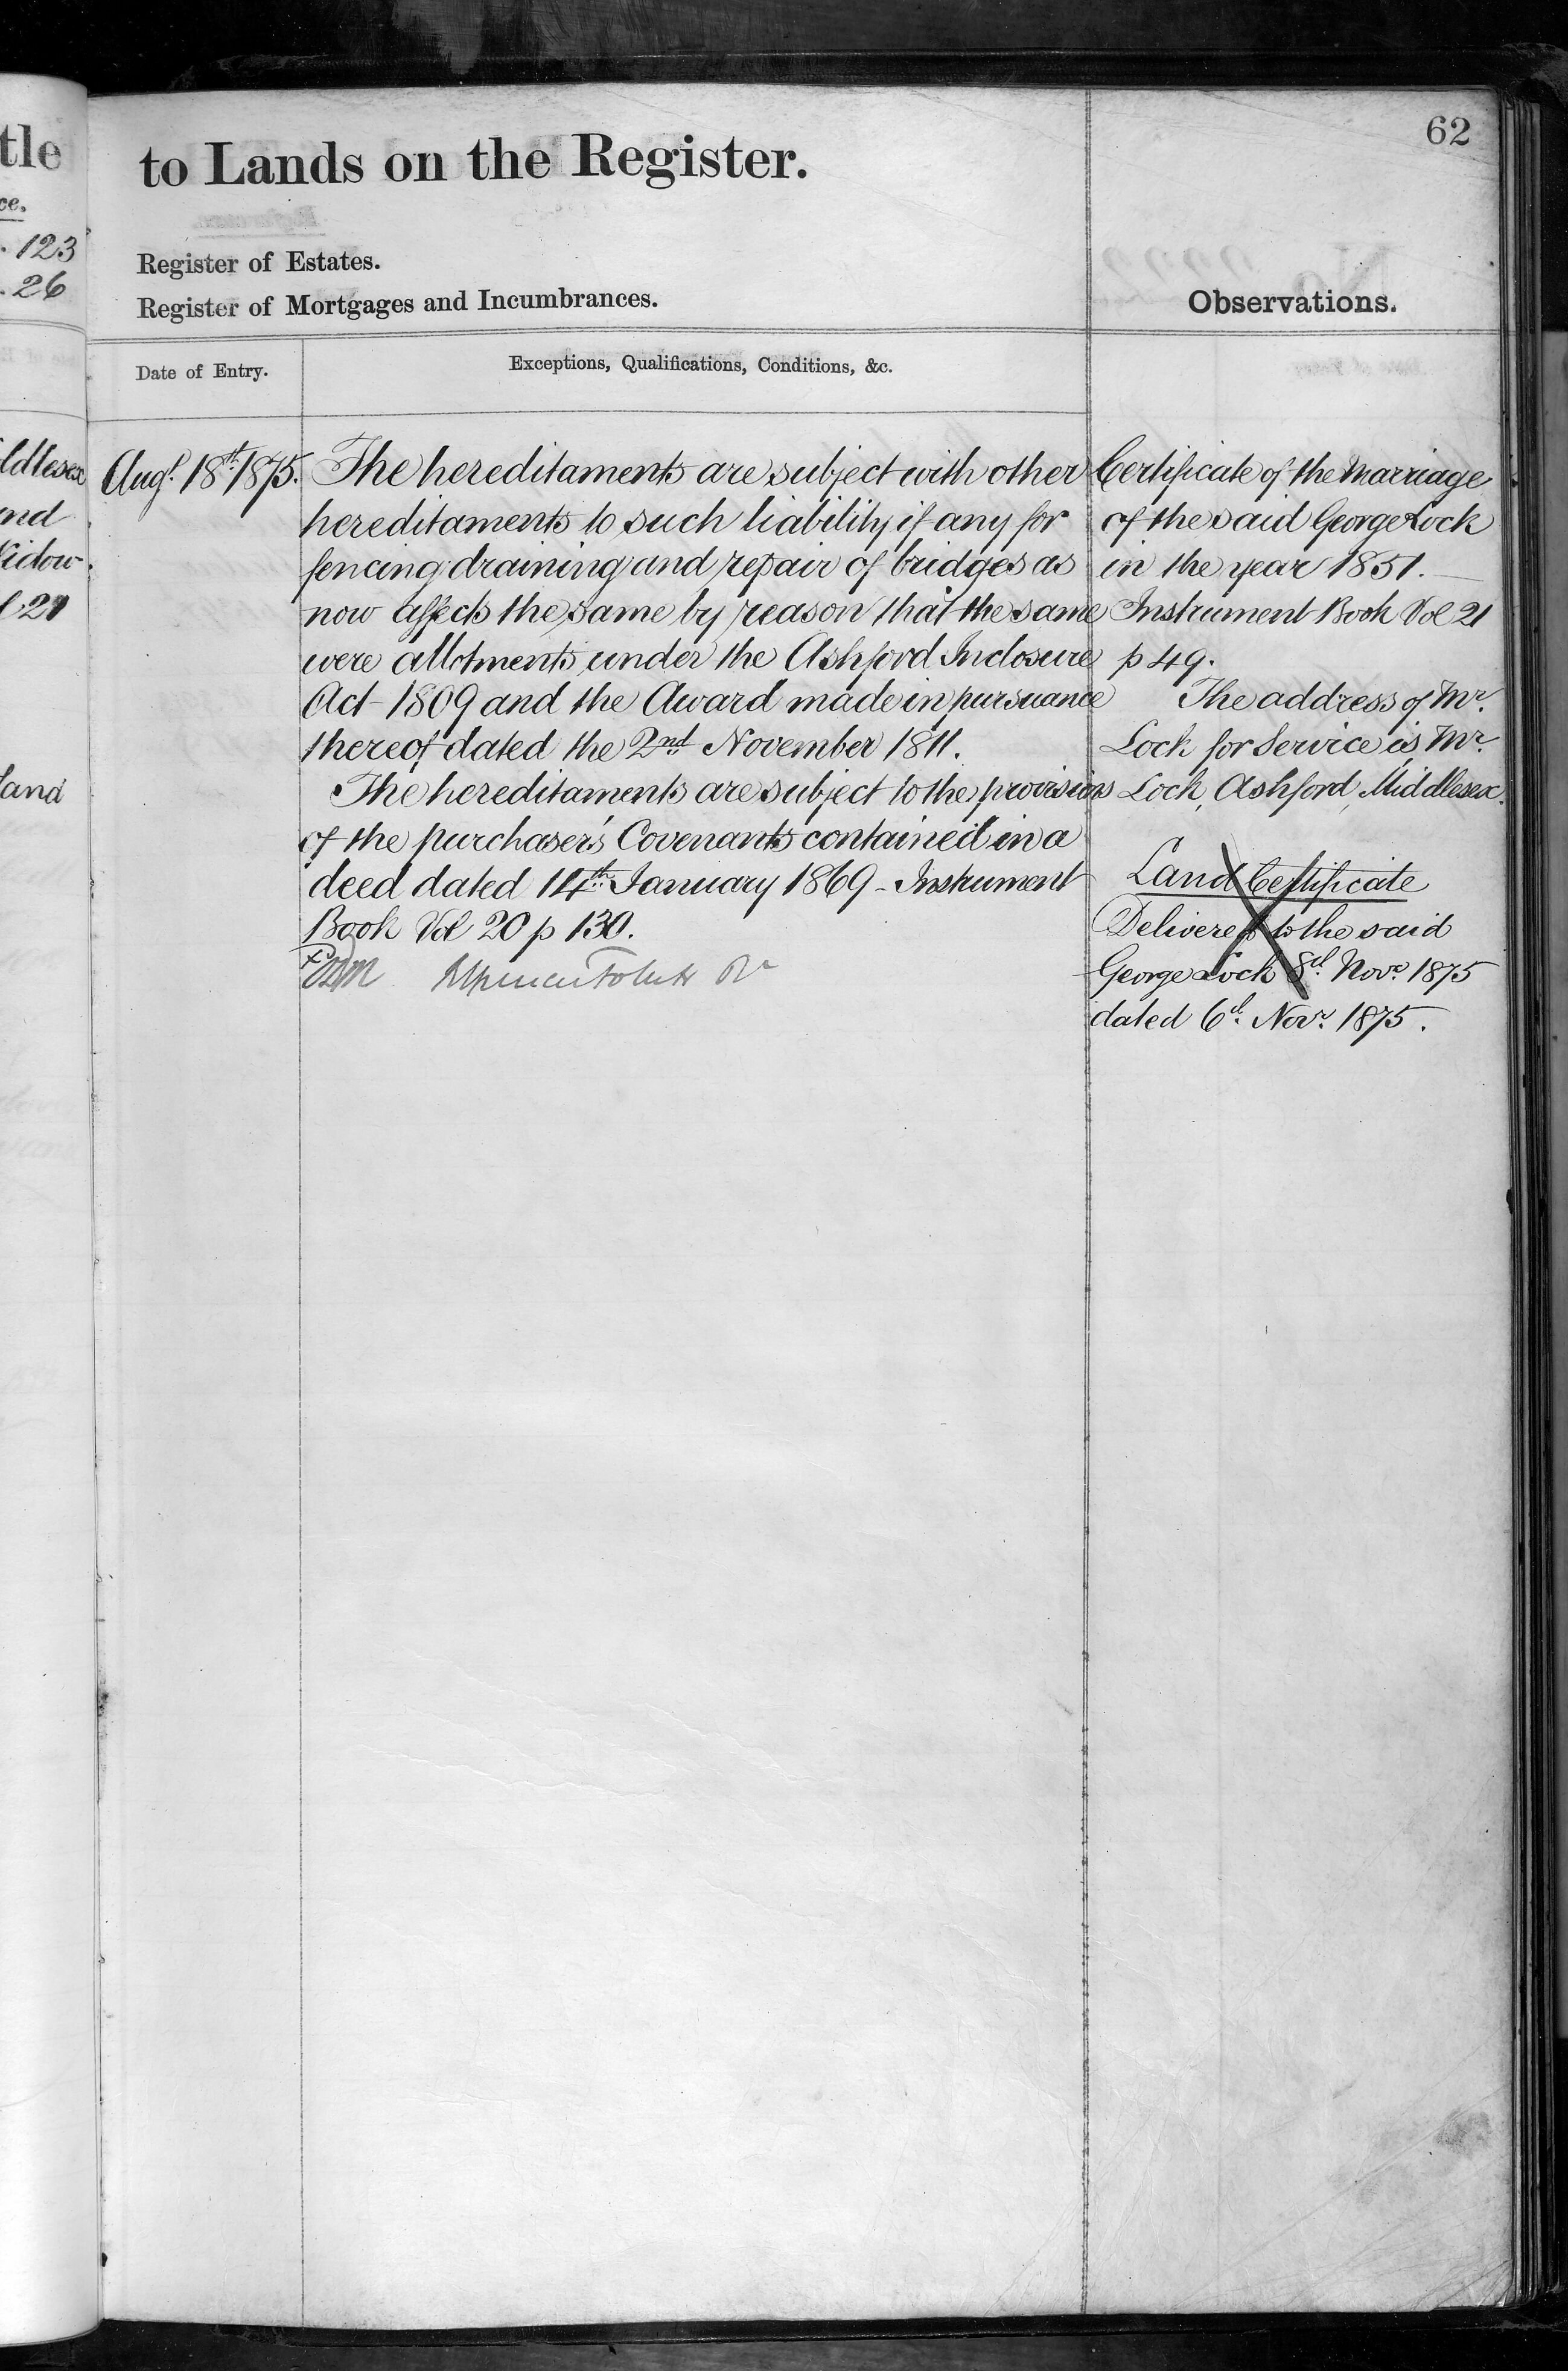 tle
ce.
. 123
. 26
ldlesex
nd
Vidow.
l 21
land
62
to Lands on the Register.
Register of Estates.
Register of Mortgages and Incumbrances.
Observations.
Date of Entry.
Exceptions, Qualifications, Conditions, &c.
Augt. 18th. 1875.
The hereditaments are subject with other
hereditaments to such liability if any for
fencing draining and repair of bridges as
now affects the same by reason that the same
were allotments under the Ashford Inclosure
Act 1809 and the Award made in pursuance
thereof dated the 2nd November 1811.
The hereditaments are subject to the provisions
of the purchaser's Covenants contained in a
deed dated 14th January 1869 - Instrument
Book Vol 20 p 130.
Certificate of the Marriage
of the said George Lock
in the year 1851.
Instrument Book Vol 21
p 49.
The address of Mr.
Lock for Service is Mr.
Lock, Ashford, Middlesex.
Land Certificate
Delivered to the said
George Lock 8th. Novr. 1875
dated 6th. Novr. 1875.